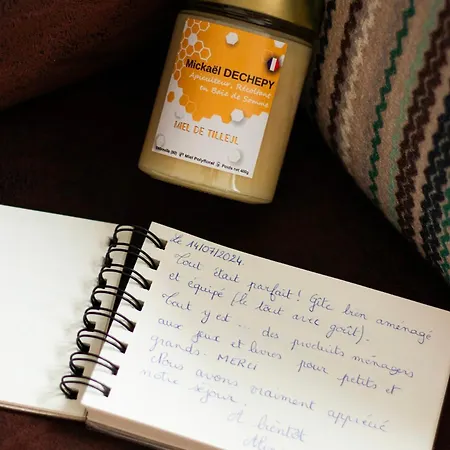 Mickaël DECHEPY
Apiculteur, Récoltant
en Baie de Somme
MIEL DE TILLEUL
Miel Polyfloral
Poids net 400g
Le 14/07/2024.
Tout était parfait ! Gîte bien amenagé
et équipé (le tout avec goût).
Tout y est ... des produits ménagers
aux jeux et livres pour petits et
grands. MERCI
Nous avons vraiment apprécié
notre séjour.
A bientôt